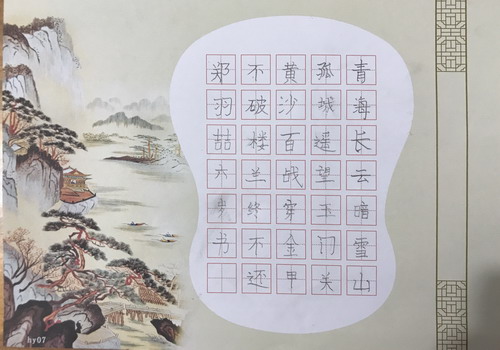 青海长云暗雪山
孤城遥望玉门关
黄沙百战穿金甲
不破楼兰终不还
郑羽喆六书
hy07